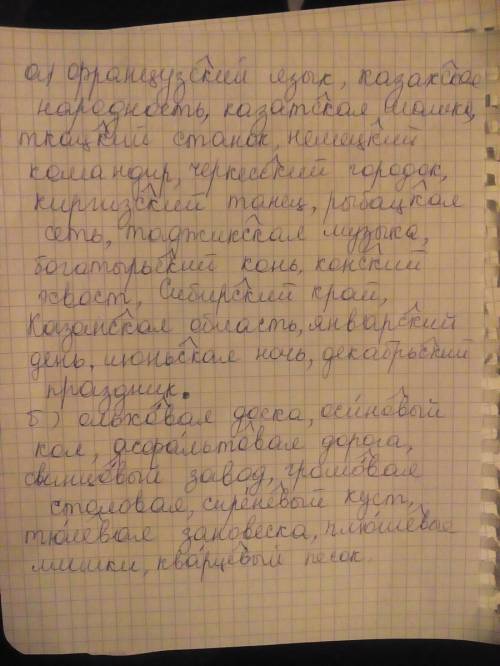 а) французский язык, казахская
народность, казатская шашка,
ткацкий станок, немецкий
командир, черкесский городок,
киргизский танец, рыбацкая
сеть, таджикская музыка,
богатырьский конь, конский
хвост, Сибирский край,
Казанская область, январский
день, июньская ночь, декабрьский
праздник.
б) ольховая доска, осиновый
кол, асфальтовая дорога,
свинцовый завод,
столовая, сиреневый куст,
тюлевая зановеска, плюшевые
мишки, кварцевый песок.